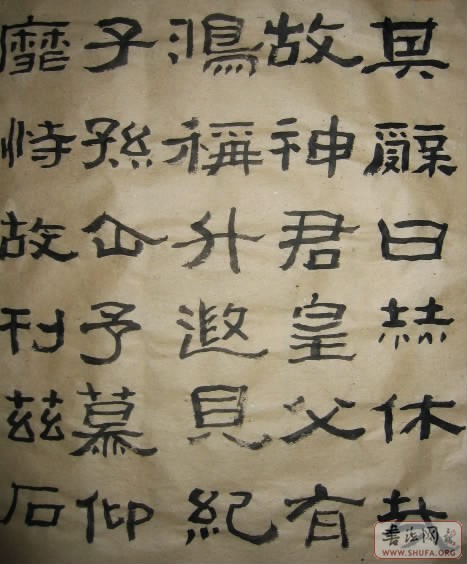 其辭曰赫休哉
故神君皇父有
鴻稱升遐見紀
子孫企予慕仰
靡恃故刊茲石
书法网
WWW.SHUFA.ORG